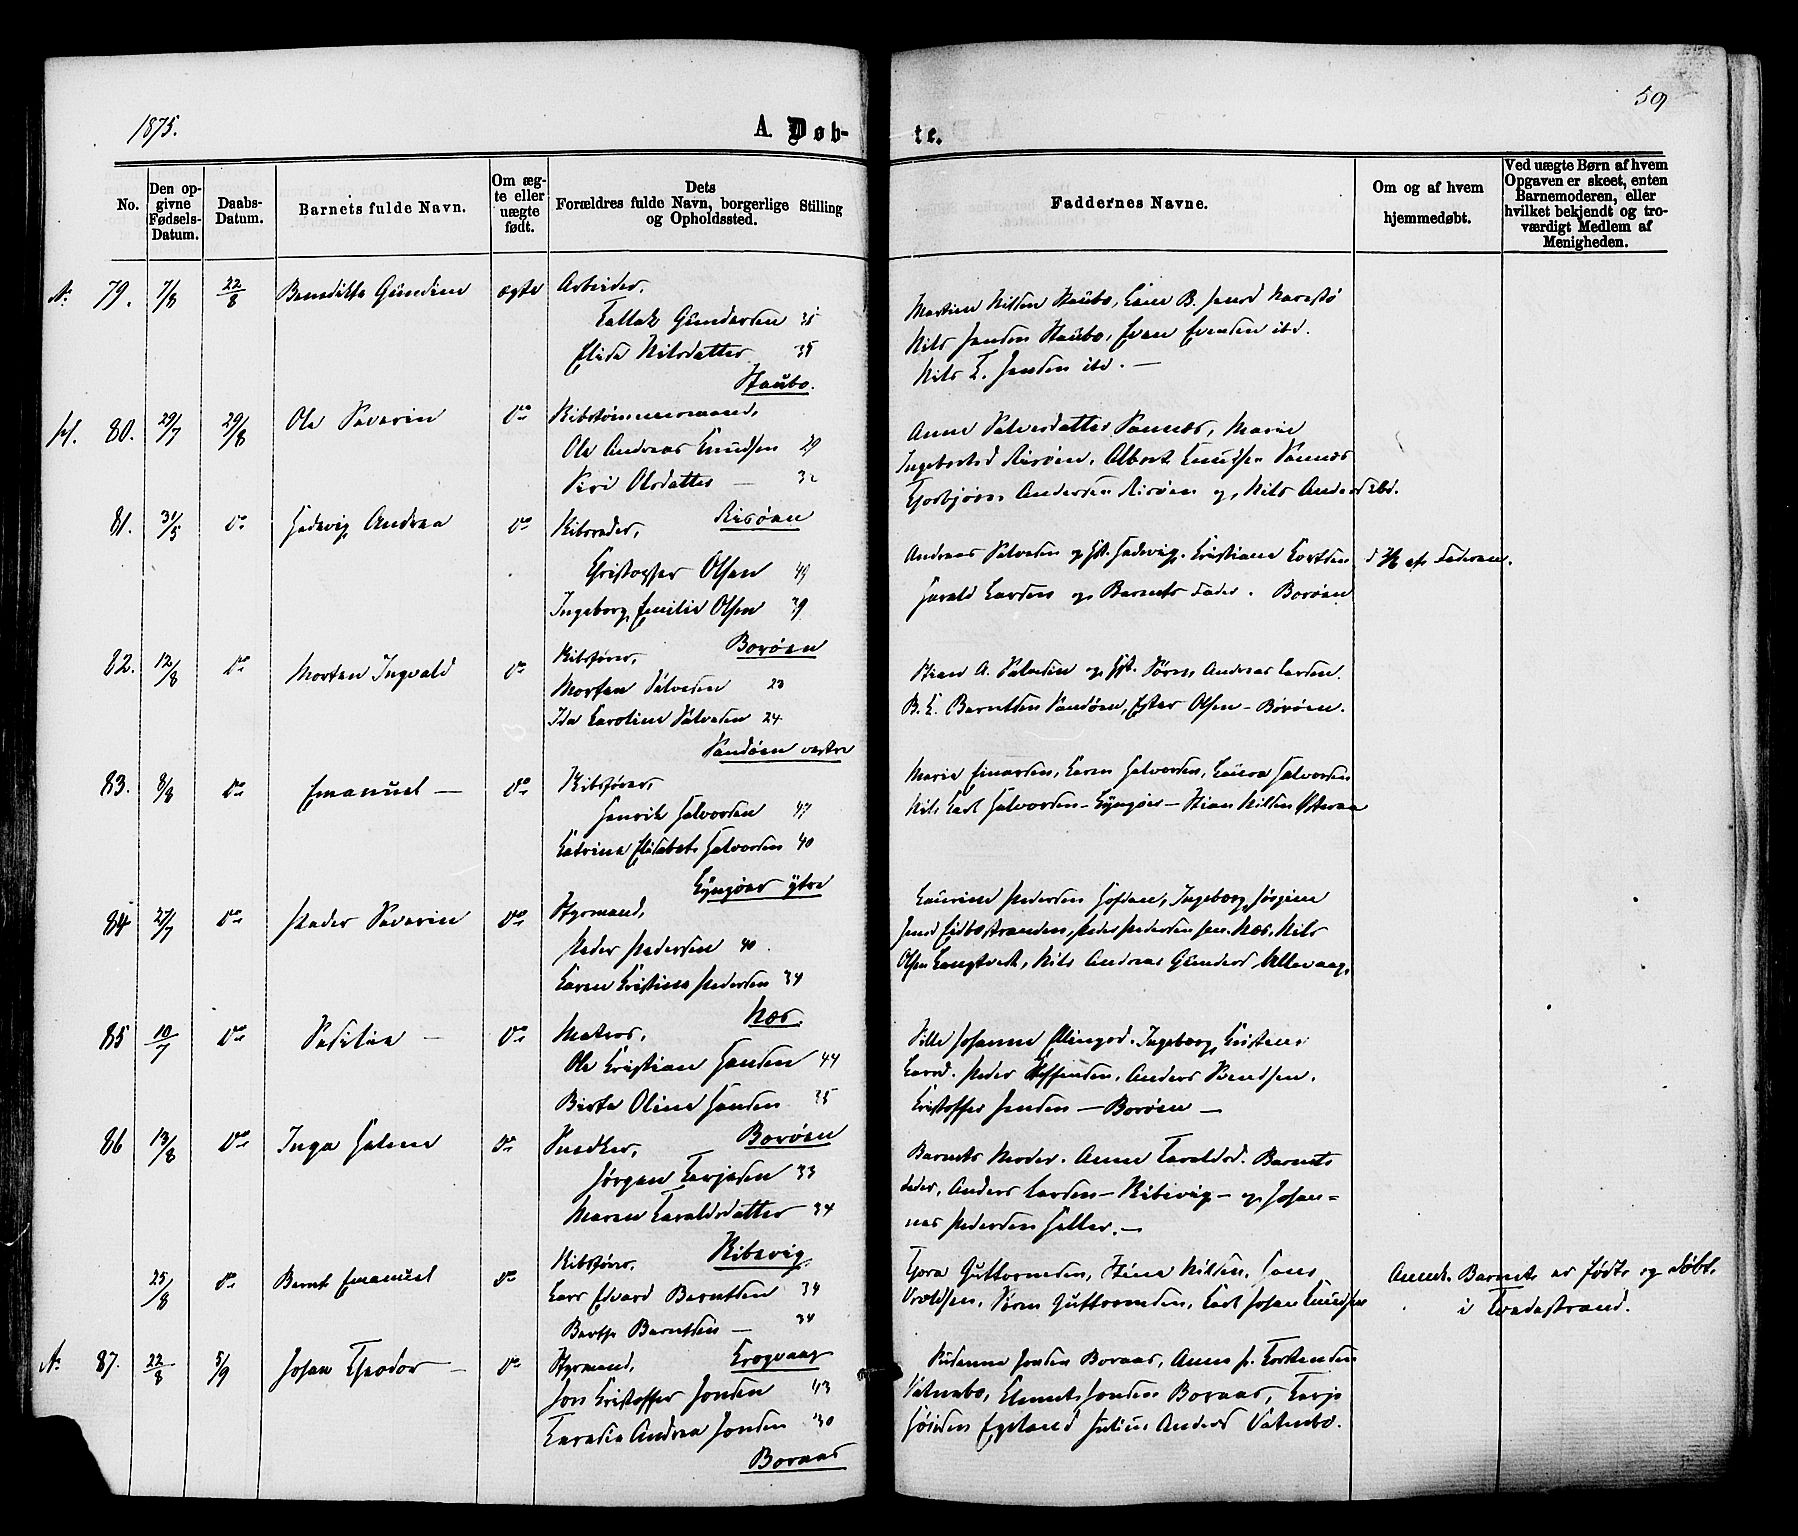 1875.
A. Døb-
te.
59
No.
Den op-
givne
Fødsels-
Datum.
Daabs-
Datum.
Barnets fulde Navn.
Om æg-
te eller
uægte
født.
Dets
Forældres fulde Navn, borgerlige Stilling
og Opholdssted.
Faddernes Navne.
Om og af hvem
hjemmedøbt.
Ved uægte Børn af hvem
Opgaven er skeet, enten
Barnemoderen, eller
hvilket bekjendt og tro-
værdigt Medlem af
Menigheden.
79. 7/8 22/8 Benedikte Gundine ægte Arbeider,
Tallak Gundersen 35
Elise Nilsdatter 35
Staubo.
Martin Nilsen Staubo, B. Narestø
Nils Jensen Staubo, Even Evensen ibd.
Nils T. Jensen ibd. —
80. 29/7 29/8 Ole Severin do Skibstømmermand,
Ole Andreas Knudsen 29
Siri Olsdatter — 32
Risøen
Anne Salvesdatter Sannes, Marie
Risøen, Albert Knudsen Sannes
Torbjørn Andersen Risøen og Nils Anders ibd.
81. 31/5 do Hedevig Andrea do Skibsreder,
Christopher Olsen 49
Ingeborg Emilie Olsen 39
Borøen
Andreas Salvesen og Hst. Hedevig. Cristiane Larsen
Harald Larsen og Barnets Fader. Borøen
af Faderen.
82. 12/8 do Morten Ingvald do Skibsfører,
Morten Salvesen 23
Ida Caroline Salvesen 24
Sandøen vestre
Stian A. Salvesen og Hst. Søren Andreas Larsen.
B. C. Berntsen Sandøen, Ester Olsen — Borøen.
83. 8/8 do Emanuel — do Skibsfører,
Henrik Halvorsen 47
Catrine Elisabet Halvorsen 40
Lyngøer ytre
Marie Einersen, Karen Halvorsen, Laura Halvorsen
Nils Carl Halvorsen — Lyngøer — Stian Nilsen Østeraa
84 27/7 do Peder Severin do Styrmand,
Peder Pedersen 40.
Karen Cristine Pedersen 34
Næs.
Laurine Pedersen, Ingeborg Jørgine
Jens Eidbostranden, Peder Pedersen sen. Næs, Nils
Olsen Langtvedt, Nils Andreas Gunders Ullevaag.
85 10/7 do — do Matros,
Ole Cristian Hansen 44
Birte Oline Hansen 35
Borøen
Sille Johanne Ellingsd. Ingeborg Cristine
Larsd. Peder Steffensen, Anders Knudsen.
Cristoffer Jensen — Borøen —
86 13/8 do Inga Helene do Snedker,
Jørgen Terjesen 33
Maren Taraldsdatter 34
Kilevig
Barnets Moder. Anne Taraldsd. Barnets
Fader, Anders Larsen — Kilevig — og Johan=
nes Pedersen Heller. —
25/8 do Bernt Emanuel do Skibsfører.
Lars Edvard Berntsen 34
Berthe Berntsen — 34
Krogvaag
Thora Guttormsen, Stine Nilsen, Hans
Søren Guttormsen, Carl Johan Knudsen
Anmk. Barnet er født og døbt
i Tvedestrand.
87. 22/8 5/9 Johan Theodor — do Styrmand,
Jens Cristoffer Jensen 43
Andrea Jensen 30
Boraas
Susanne Jensen Boraas, Anne Torstensen
Vatnebo, Clemet Jensen Boraas, Terje
Egeland Julius Anders Vatnebo.